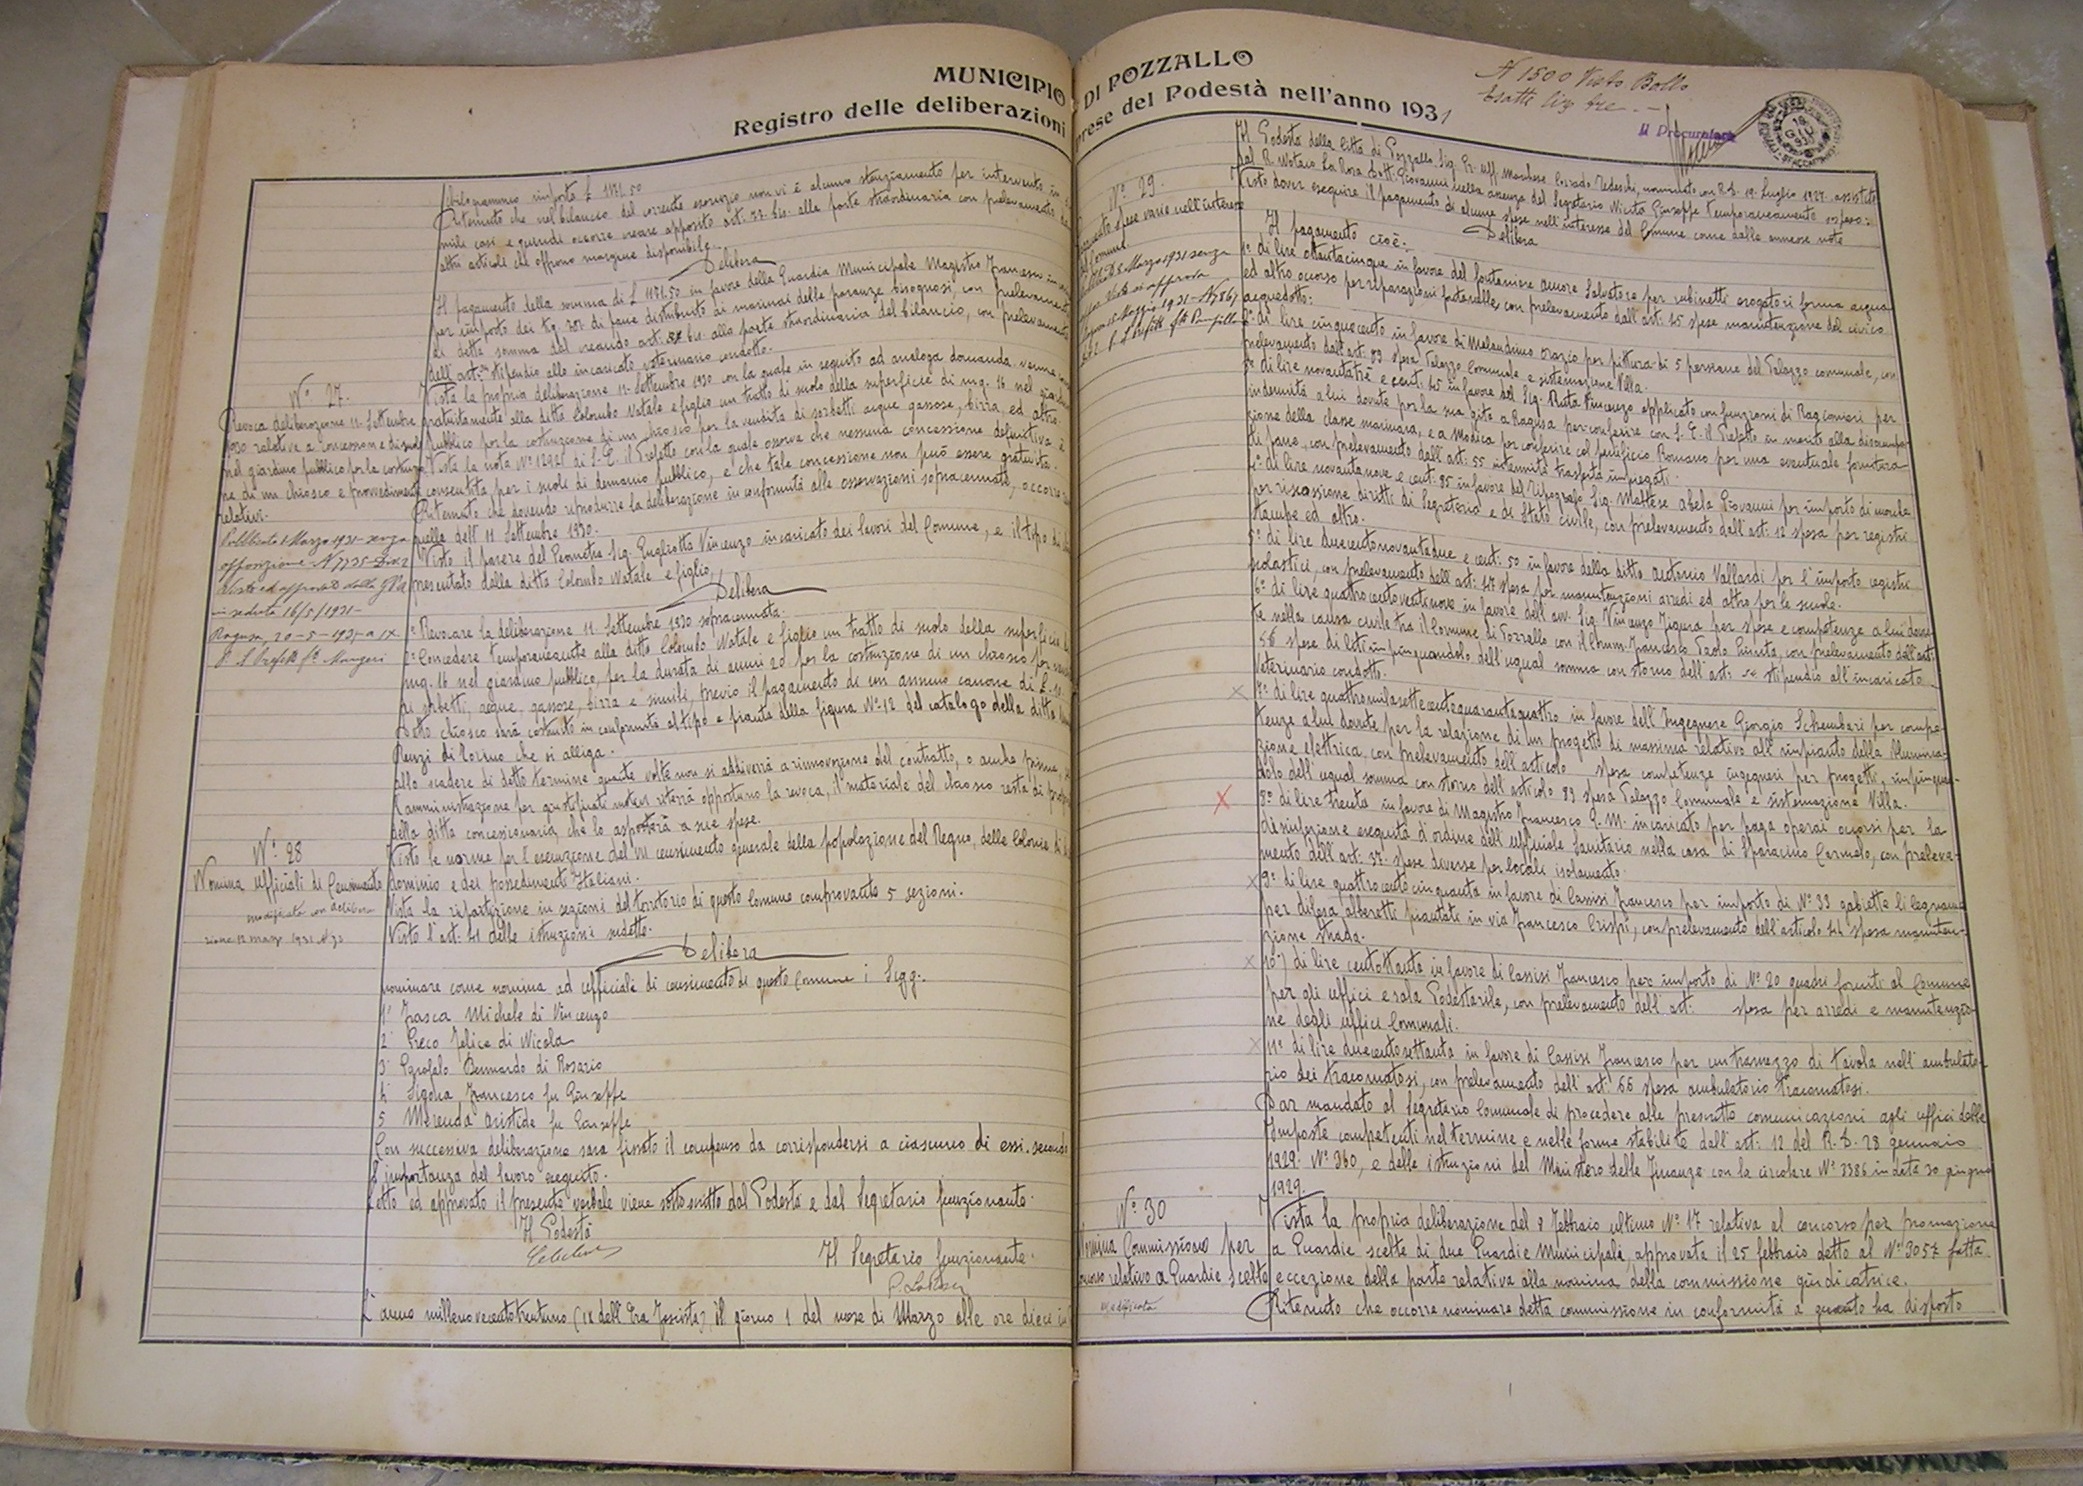 MUNICIPIO DI POZZALLO
Registro delle deliberazioni prese del Podestà nell'anno 1931
N 1500 Visto Bollo
Esatte lire tre
Il Procuratore
importo £ 1171.50
Ritenuto che nel bilancio del corrente esercizio non vi è alcuno stanziamento per intervento in
mili casi e quindi occorre creare apposito art. 32 bis. alla parte straordinaria con prelevamento da
altri articoli che offrono margine disponibile.
Delibera
Il pagamento della somma di £ 1171.50 in favore della Guardia Municipale Magistro Francesco
per importo dei Kg. di pane distribuito ai marinai delle paranze bisognosi, con prelevamento
di detta somma dal creando art. bis. alla parte straordinaria del bilancio, con prelevamento
dell'art. stipendio allo incaricato veterinario condotto.
N° 27.
Revoca deliberazione 11 Settembre
1930 relativa a concessione di suolo
nel giardino pubblico per la costruzio
ne di un chiosco e provvedimenti
relativi.
Pubblicata 1 Marzo 1931 senza
opposizione - N 7735 Div. 2
Vista ed approvata dalla GPA
in seduta 16/5/1931 -
Ragusa, 20-5-1931 a IX
Vista la propria deliberazione 11 Settembre 1930 con la quale in seguito ad analoga domanda venne
gratuitamente alla ditta Colombo Natale e figlio un tratto di suolo della superficie di mq. 16 nel giardino
pubblico per la costruzione di un chiosco per la vendita di sorbetti acque gassose, birra, ed altro.
Vista la nota N° di S. E. il Prefetto con la quale osserva che nessuna concessione definitiva è
consentita per i suoli di demanio pubblico, e che tale concessione non può essere gratuita.
Ritenuto che dovendo riprodurre la deliberazione in conformità alle osservazioni sopracennate, occorre
quella dell'11 Settembre 1930.
Visto il parere del Geometra Sig. Gugliotta Vincenzo incaricato dei lavori del Comune, e il tipo di
presentato dalla ditta Colombo Natale e figlio,
Delibera
1° Revocare la deliberazione 11 Settembre 1930 sopracennata.
2° Concedere temporaneamente alla ditta Colombo Natale e figlio un tratto di suolo della superficie di
mq. 16 nel giardino pubblico, per la durata di anni 20 per la costruzione di un chiosco per
di sorbetti, acque, gassose, birra e simili, previo il pagamento di un annuo canone di £.
Detto chiosco sarà costruito in conformità al tipo e pianta della figura N° 12 del catalogo della ditta
Renzi di Torino che si alliga.
Allo scadere di detto termine quante volte non si addiverrà a rinnovazione del contratto, o anche prima,
l'amministrazione per giustificati motivi riterrà opportuno la revoca, il materiale del chiosco resta di
della ditta concessionaria, che lo asporterà a sue spese.
N° 28
Nomina Ufficiali di Censimento
modificata con delibera
zione 12 marzo 1931 N. 32
Viste le norme per l'esecuzione del VII censimento generale della popolazione del Regno, delle Colonie di
dominio e dei possedimenti Italiani.
Vista la ripartizione in sezioni del territorio di questo Comune comprovante 5 sezioni.
Visto l'art. 41 delle istruzioni suddette.
Delibera
nominare come nomina ad ufficiale di censimento di questo Comune i Sigg:
1° Frasca Michele di Vincenzo
2 Greco Felice di Nicola
3 Garofalo Bernardo di Rosario
4 Sigona Francesco fu Giuseppe
5 Merenda Aristide fu Giuseppe
Con successiva deliberazione sarà fissato il compenso da corrispondersi a ciascuno di essi. secondo
l'importanza del lavoro eseguito.
Letto ed approvato il presente verbale viene sottoscritto dal Podestà e dal Segretario funzionante.
Il Podestà
Il Segretario funzionante.
L'anno millenovecentotrentuno (IX dell'Era Fascista) il giorno 1 del mese di Marzo alle ore dieci in
Il Podestà della Città di Pozzallo Sig. Gr. Uff. Marchese Corrado Tedeschi, nominato con R. D. 19 Luglio 1927. assistito
dal R. Notaro La Rosa Dott. Giovanni nella assenza del Segretario Nicita Giuseppe temporaneamente sospeso:
N° 29.
Pagamento spese varie nell'interesse
del Comune
Visto dover eseguire il pagamento di alcune spese nell'interesse del Comune come dalle annesse note
Delibera
Il pagamento cioè:
1° di lire ottantacinque in favore del fontaniere Amore Salvatore per rubinetti erogatori forma acqua
ed altro occorso per riparazioni fontanelle, con prelevamento dall'art. 45 spese manutenzione del civico
acquedotto:
2° di lire cinquecento in favore di Melandrino Orazio per pittura di 5 persiane del Palazzo comunale, con
prelevamento dall'art. 83 spesa Palazzo Comunale e sistemazione Villa.
3° di lire novantatré e cent. 45 in favore del Sig. Ruta Vincenzo applicato con funzioni di Ragioniere per
indennità a lui dovute per la sua gita a Ragusa per conferire con S. E. il Prefetto in merito alla disoccupa-
zione della classe marinara, e a Modica per conferire col pastificio Romano per una eventuale fornitura
di pane, con prelevamento dall'art. 55 indennità trasferta impiegati.
4° di lire novantanove e cent. 95 in favore del tipografo Sig. Maltese Abela Giovanni per importo di marche
per riscossione diritti di Segreteria e di Stato civile, con prelevamento dall'art. 12 spesa per registri
stampe ed altro.
5° di lire duecentonovantadue e cent. 50 in favore della ditta Antonio Vallardi per l'importo registri
scolastici, con prelevamento dell'art. 47 spesa per manutenzioni arredi ed altro per le scuole.
6° di lire quattrocentoventinove in favore dell'avv. Sig. Vincenzo Figura per spese e competenze a lui dovu-
te nella causa civile tra il Comune di Pozzallo con il Comm. Francesco Paolo Giunta, con prelevamento dall'art.
56 spese di liti impinguandolo dell'ugual somma con storno dell'art. 54 stipendio all'incaricato
Veterinario condotto.
7° di lire quattromilasettecentoquarantaquattro in favore dell'Ingegnere Giorgio Schembari per compe-
tenze a lui dovute per la relazione di un progetto di massima relativo all'impianto della illumina-
zione elettrica, con prelevamento dell'articolo spesa competenze ingegneri per progetti, impinguan-
dolo dell'ugual somma con storno dell'articolo 83 spesa Palazzo Comunale e sistemazione Villa.
8° di lire trenta in favore di Magistro Francesco G. M. incaricato per paga operai occorsi per la
disinfezione eseguita d'ordine dell'Ufficiale Sanitario nella casa di Sparacino Carmelo, con preleva-
mento dell'art. 37. spese diverse per locali isolamento.
9° di lire quattrocentocinquanta in favore di Cassisi Francesco per importo di N° 33 gabiette di legname
per difesa alberetti piantati in via Francesco Crispi, con prelevamento dell'articolo 44 spesa manuten-
zione strada.
10°) di lire centottanta in favore di Cassisi Francesco per importo di N° 20 quadri forniti al Comune
per gli uffici e sala Podestarile, con prelevamento dell'art. spesa per arredi e manutenzio-
ne degli uffici Comunali.
11° di lire duecentosettanta in favore di Cassisi Francesco per un tramezzo di tavola nell'ambulato-
rio dei tracomatosi, con prelevamento dell'art. 66 spesa ambulatorio tracomatosi.
Dar mandato al Segretario Comunale di procedere alle prescritte comunicazioni agli uffici delle
Imposte competenti nel termine e nelle forme stabilite dall'art. 12 del R. D. 28 gennaio
1929. N° 360, e delle istruzioni del Ministero delle Finanze con la circolare N° 3386 in data 30 giugno
1929.
N° 30
Nomina Commissione per
concorso relativo a Guardie Scelte
modificata
Vista la propria deliberazione del 8 Febbraio ultimo N° 17 relativa al concorso per promozione
a Guardie scelte di due Guardie Municipali, approvata il 25 febbraio detto al N° 3057 fatta
eccezione della parte relativa alla nomina della commissione giudicatrice.
Ritenuto che occorre nominare detta commissione in conformità a quanto ha disposto